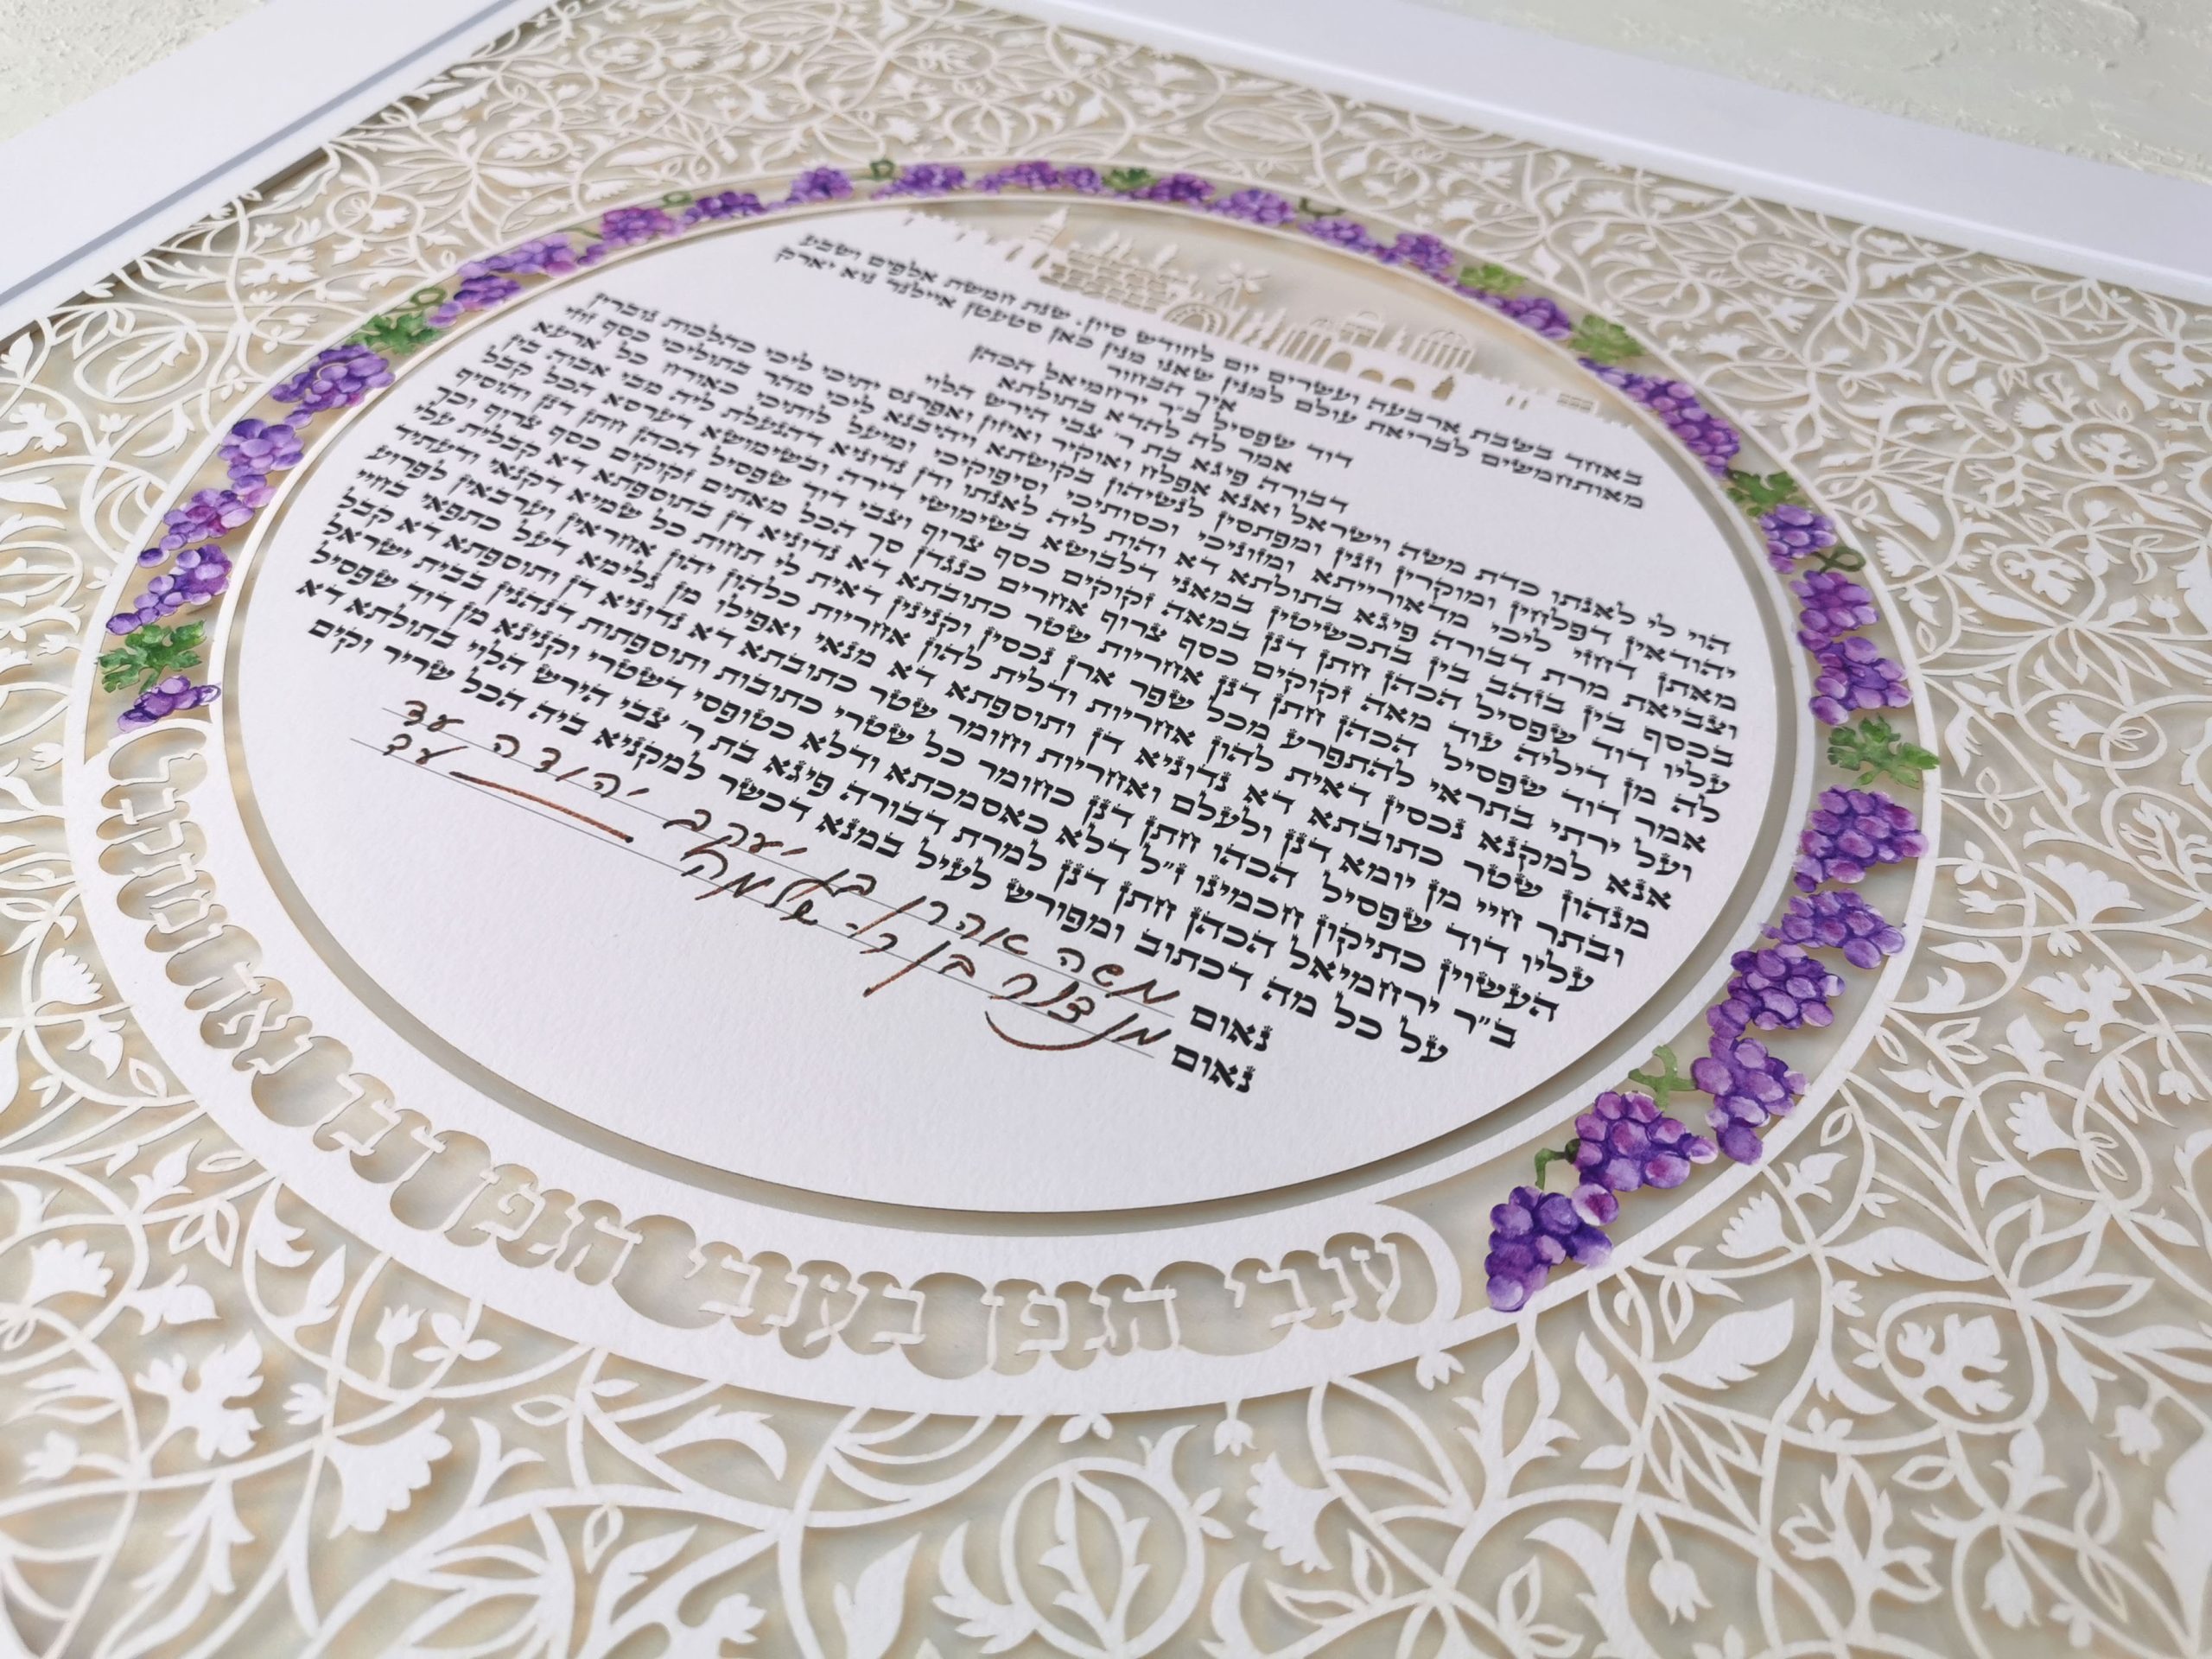 באחד בשבת ארבעה ועשרים יום לחודש סיון, שנת חמשת אלפים ושבע
מאות וחמשים לבריאת עולם למנין שאנו מנין כאן סטעטן איילנד נוא יארק
איך הבחור
דוד שפסיל ב״ר ירחמיאל הכהן
אמר לה להדא בתולתא
דבורה פיגא בת ר׳ צבי הירש הלוי
הוי לי לאנתו כדת משה וישראל ואנא אפלח ואוקיר ואיזון ואפרנס יתיכי ליכי כהלכות גוברין
יהודאין דפלחין ומוקרין וזנין ומפרנסין לנשיהון בקושטא ויהיבנא ליכי מהר בתוליכי כסף זוזי
מאתן דחזי ליכי מדאורייתא ומזוניכי וכסותיכי וסיפוקיכי ומיעל לותיכי כאורח כל ארעא
וצביאת מרת דבורה פיגא בתולתא דא והות ליה לאנתו ודן נדוניא דהנעלת ליה מבי אבוה בין
בכסף בין בזהב בין בתכשיטין במאני דלבושא בשימושי דירה ובשימושא דערסא הכל קבל
עליו דוד שפסיל הכהן חתן דנן במאה זקוקים כסף צרוף וצבי דוד שפסיל הכהן חתן דנן והוסיף
לה מן דיליה עוד מאה זקוקים כסף צרוף אחרים כנגדן סך הכל מאתים זקוקים כסף צרוף וכך
אמר דוד שפסיל הכהן חתן דנן אחריות שטר כתובתא דא נדוניא דן ותוספתא דא קבלית עלי
ועל ירתי בתראי להתפרע מכל שפר ארג נכסין וקנינין דאית לי תחות כל שמיא דקנאי ודעתיד
אנא למקנא נכסין דאית להון אחריות ודלית להון אחריות כלהון יהון אחראין וערבאין לפרוע
מנהון שטר כתובתא דא נדוניא דן ותוספתא דא מנאי ואפילו מן גלימא דעל כתפאי בחיי
ובתר חיי מן יומא דנן ולעלם ואחריות וחומר שטר כתובתא דא נדוניא דן ותוספתא דא קבל
עליו דוד שפסיל הכהן חתן דנן כחומר כל שטרי כתובות ותוספתות דנהגין בבית ישראל
העשוין כתיקון חכמינו ז״ל דלא כאסמכתא ודלא כטופסי דשטרי וקנינא מן דוד שפסיל
ב״ר ירחמיאל הכהן חתן דנן למרת דבורה פיגא בת ר׳ צבי הירש הלוי בתולתא דא
על כל מה דכתוב ומפורש לעיל במנא דכשר למקניא ביה הכל שריר וקים
נאום משה אהרן בן יעקב יהודה עד
נאום מנדל בן ר׳ שלמה עד
ענבי הגפן בענבי הגפן דבר נאה ומתקבל